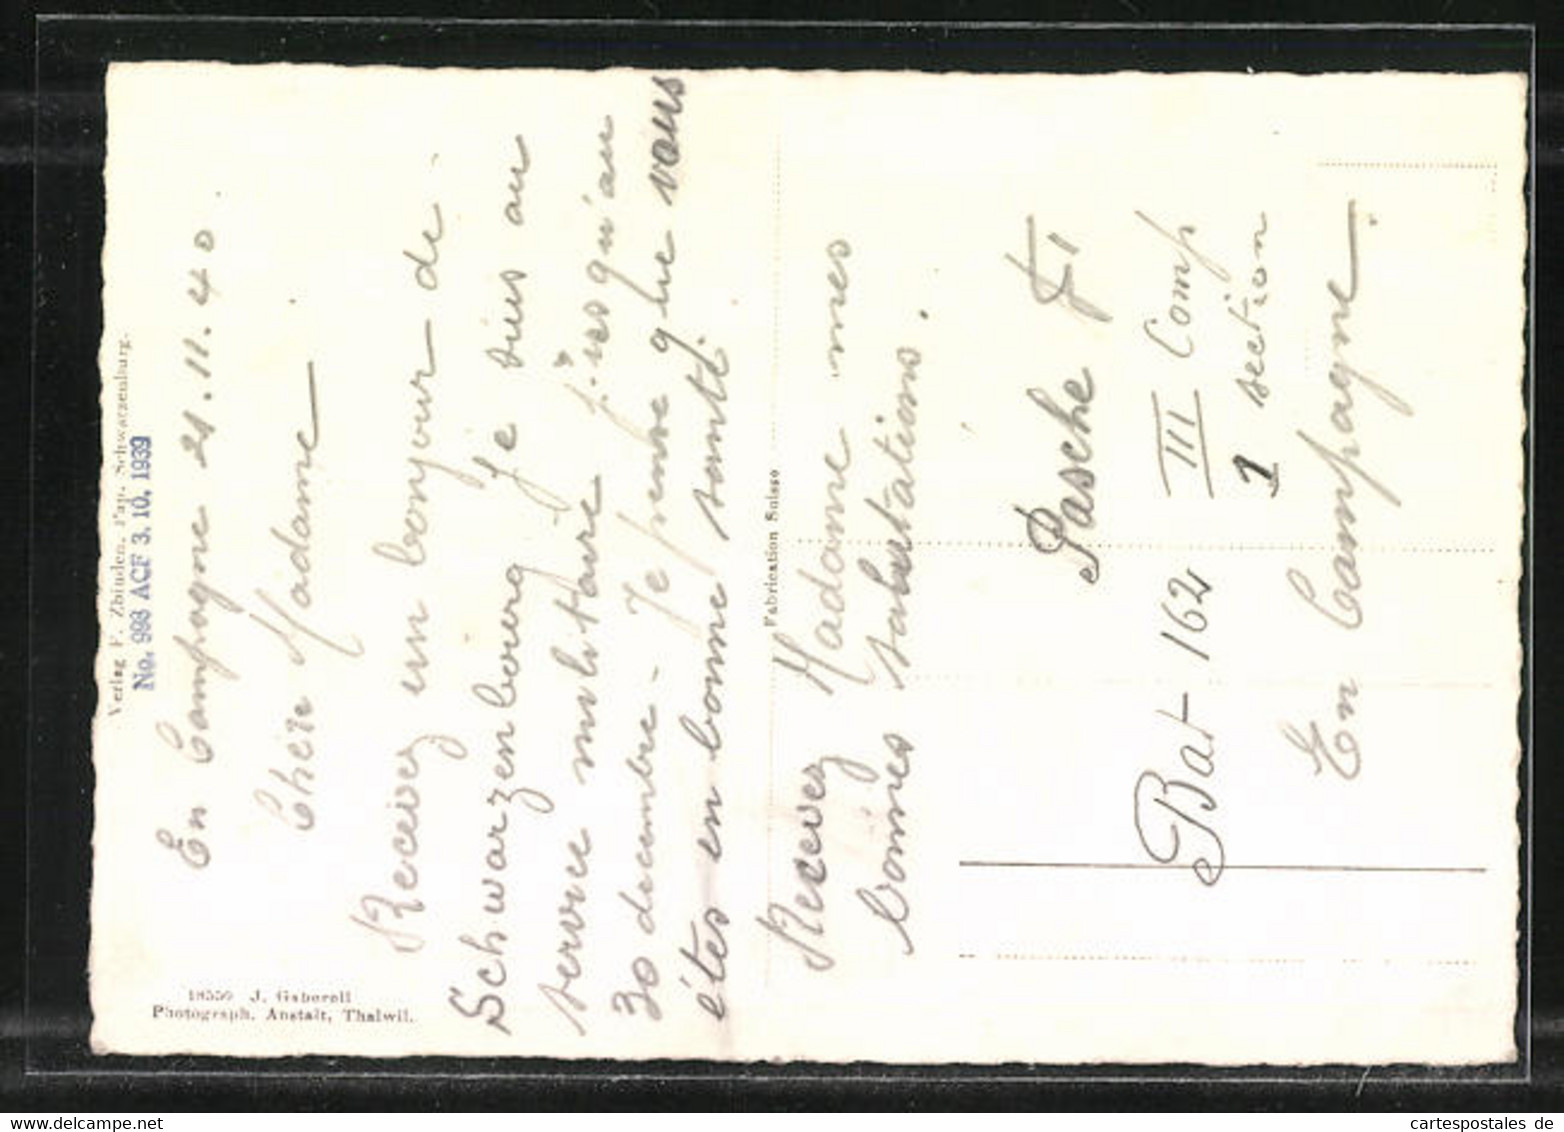 En Campagne 21.11.40.
Chère Madame
Recevez un bonjour de
Schwarzenbourg Je suis au
service militaire j'usqu'au
30 decembre. Je pense que vous
étes en bonne santé.
Recevez Madame mes
bonnes salutations.
Pasche F
Bat 162 III Comp
1 section
En Campagne.
Verlag F. Zbinden, Pap. Schwarzenburg.
No. 993 ACF 3. 10. 1939
18550 J. Gaberell
Photograph. Anstalt, Thalwil.
Fabrication Suisse
cartespostales de